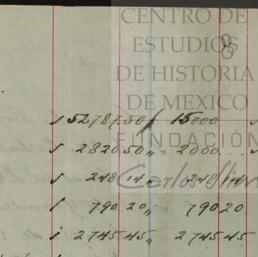 CENTRO DE
ESTUDIOS
8
DE HISTORIA
DE MEXICO
52787.50 15000
FUNDACIÓN
2820 50 " 2000
Carlos Slim
248 14 " 248 14
790 20 " 790 20
2745 45 " 2745 45